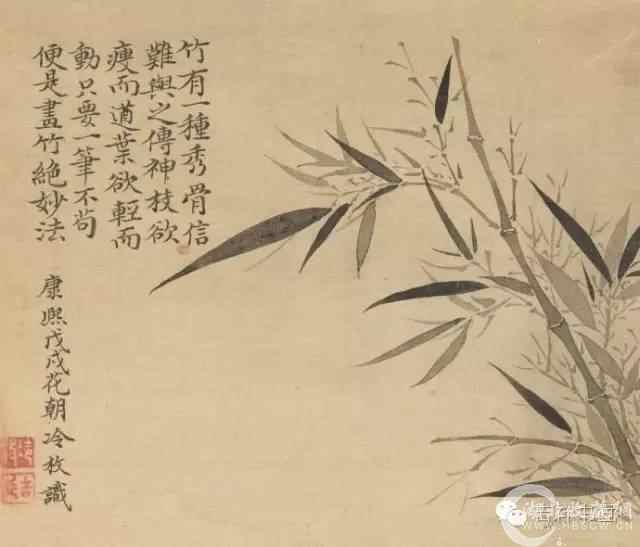 竹有一種秀骨信
難與之傳神枝欲
瘦而遒葉欲輕而
動只要一筆不苟
便是畫竹絕妙法
康熙戊戌花朝冷枚識
WWW.HBSCW.CN